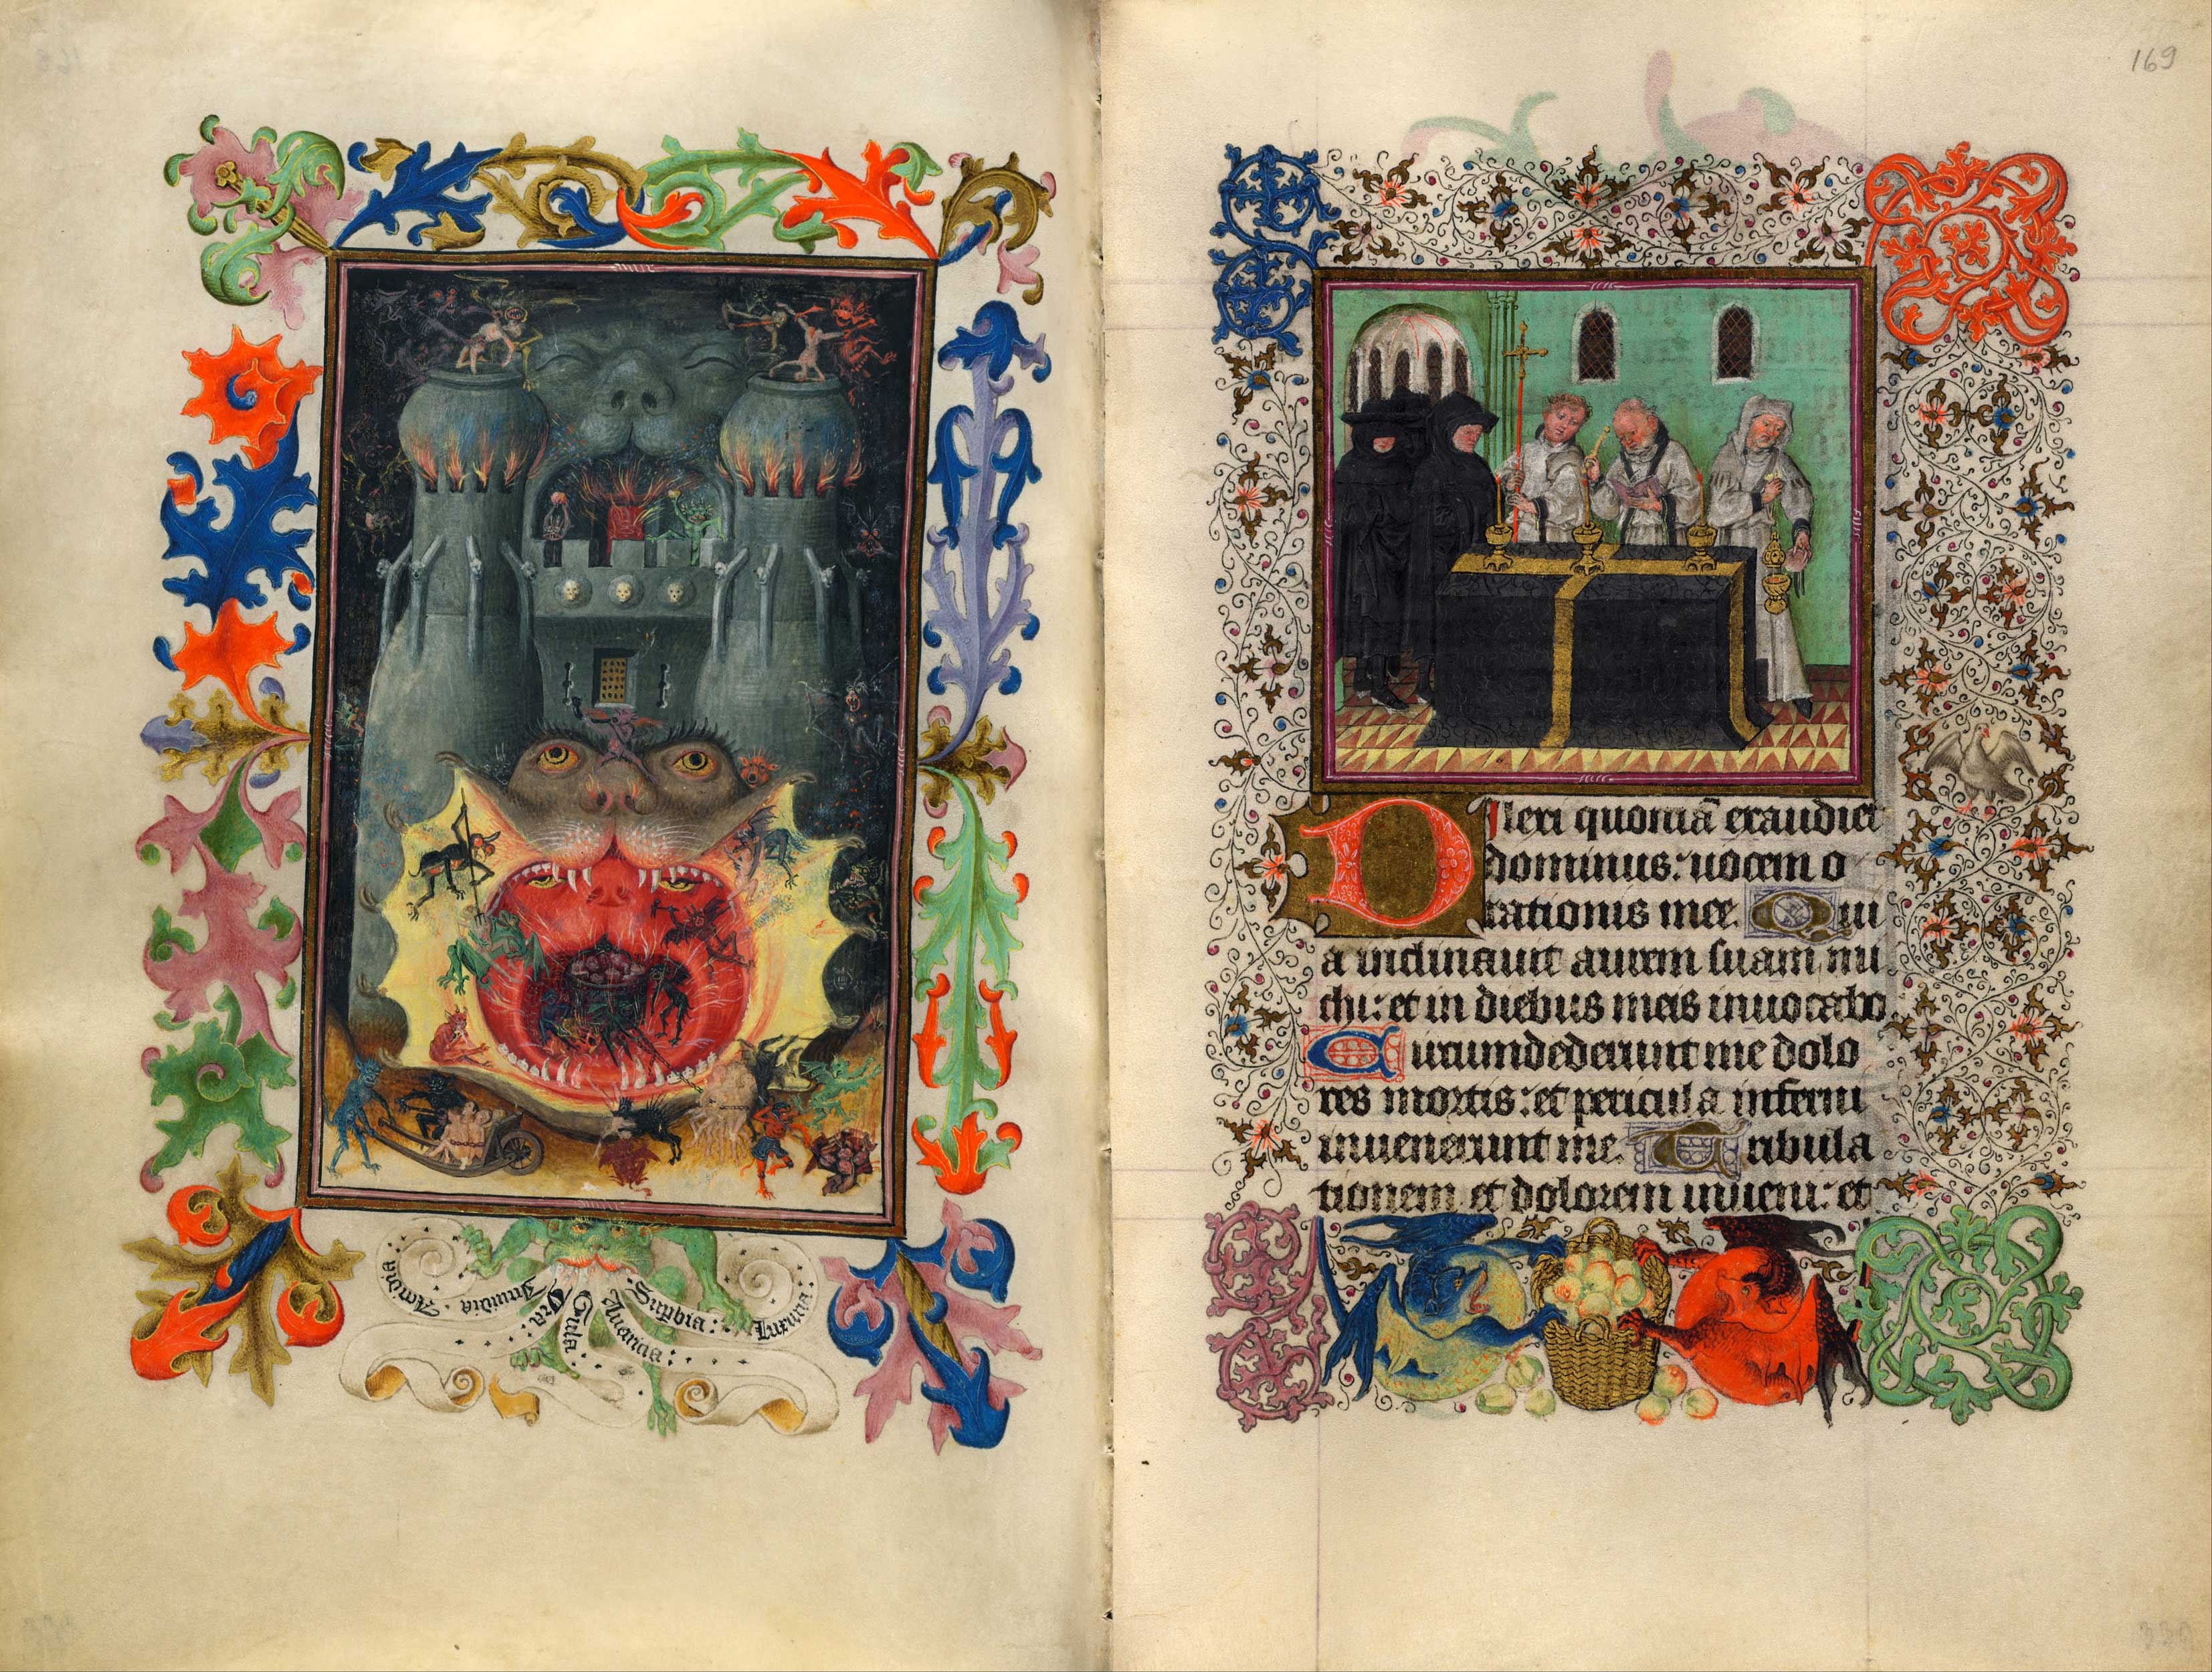 Acidia
Inuidia
Yra:
Gula
Auaricia:
Supbia:
Luxuria:
169
Dilexi quoniā exaudiet
dominus: uocem o
rationis mee. Qui
a inclinauit aurem suam mi
chi: et in diebus meis inuocabo.
Circumdederunt me dolo
res mortis: et pericula inferni
inuenerunt me. Tribula
tionem et dolorem inueni: et